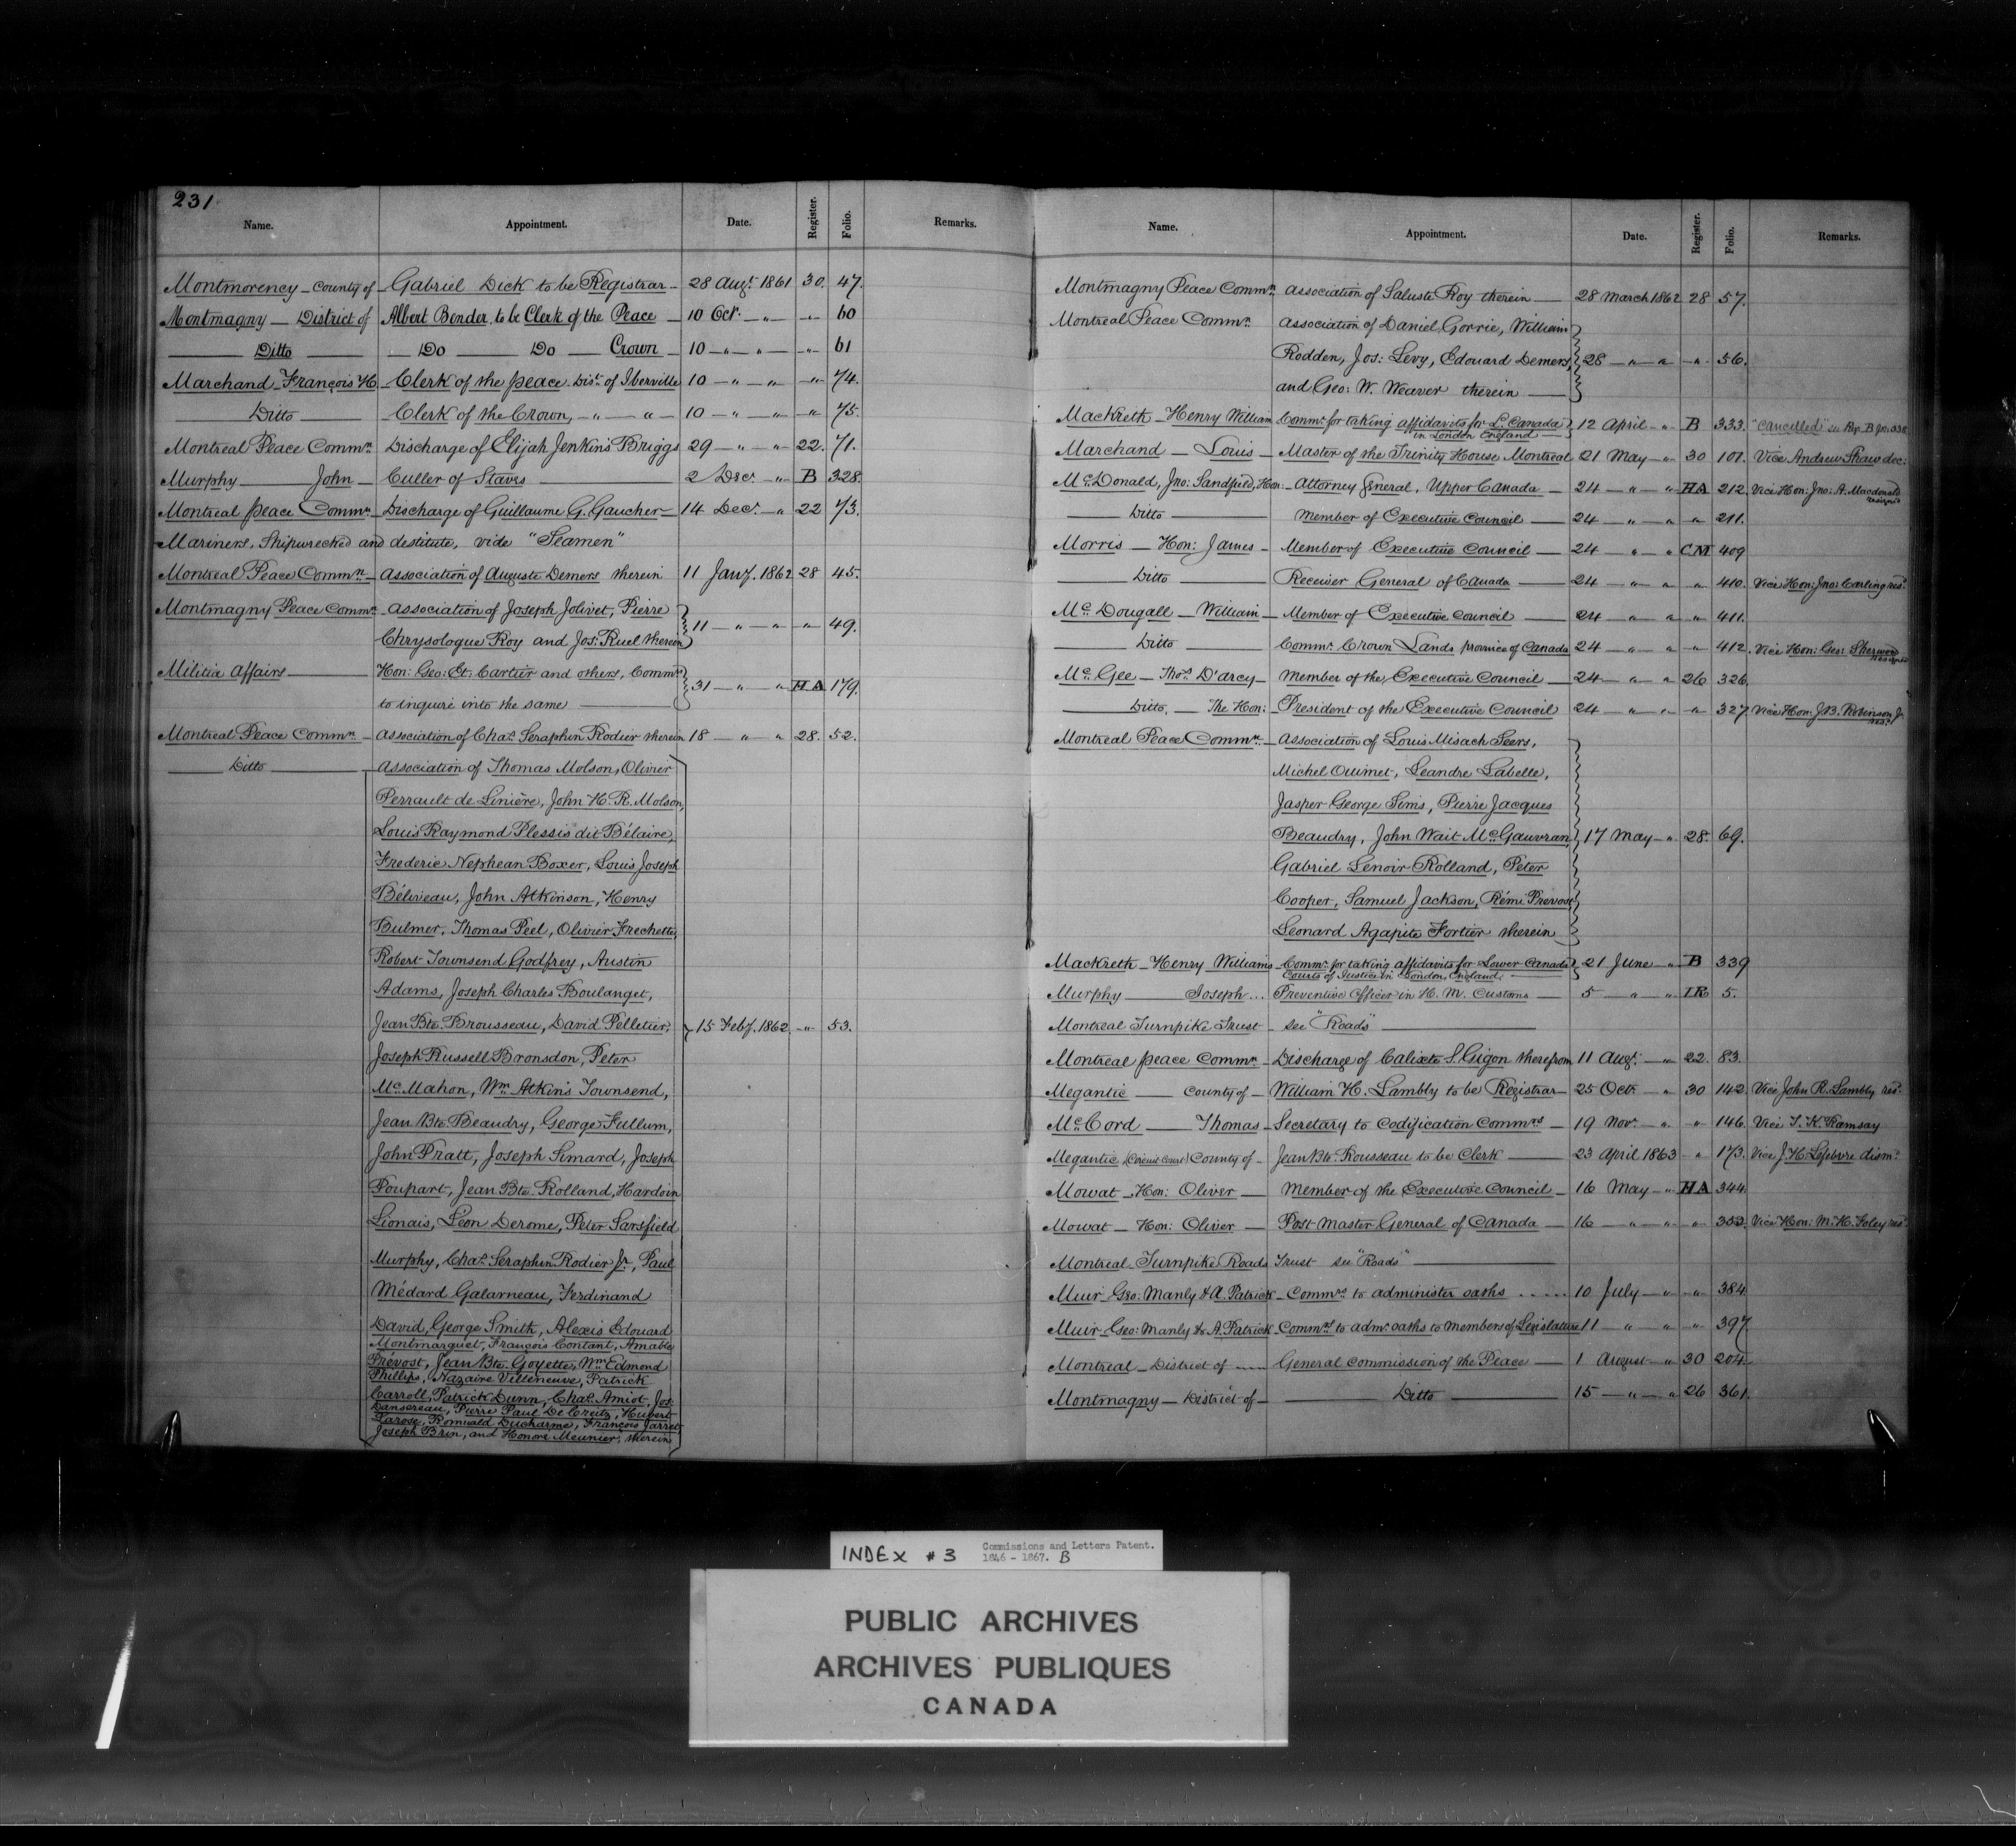 231
Name. Appointment. Date. Register. Folio. Remarks.
Montmorency - County of - Gabriel Dick to be Registrar - 28 Augt. 1861 30. 47.
Montmagny - District of Albert Bender to be Clerk of the Peace - 10 Oct. - " - - " - 60
Ditto - Do - Do - Crown - 10 - " - " - - " - 61
Marchand - François H. - Clerk of the peace Dist. of Iberville 10 - " - " - - " - 74.
Ditto - Clerk of the Crown, - " - " - 10 - " - " - - " - 75.
Montreal Peace Commn. Discharge of Elijah Jenkins Briggs 29 - " - " - 22. 71.
Murphy - John - Culler of Staves 2 Decr. - " - B 328.
Montreal peace Commn. - Discharge of Guillaume G. Gaucher - 14 Decr. - " 22 73.
Mariners, Shipwrecked and destitute, vide "Seamen"
Montreal Peace Commn. - Association of Auguste Demers therein 11 Jany. 1862 28 45.
Montmagny Peace Commn. - Association of Joseph Jolivet, Pierre
Chrysologue Roy and Jos: Ruel therein 11 - " - " - " - 49.
Militia Affairs - Hon: Geo: Et: Cartier and others, Commrs.
to inquire into the same - 31 - " - " HA 179.
Montreal Peace Commn. - Association of Chas. Seraphin Rodier therein 18 - " - " 28. 52.
Ditto - Association of Thomas Molson, Olivier
Perrault de Linière, John H. R. Molson,
Louis Raymond Plessis dit Bélaire,
Frederic Nephean Boxer, Louis Joseph
Béliveau, John Atkinson, Henry
Bulmer, Thomas Peel, Olivier Frechette,
Robert Townsend Godfrey, Austin
Adams, Joseph Charles Boulanget,
Jean Bte. Brousseau, David Pelletier, 15 Feby. 1862 - " - 53.
Joseph Russell Bronsdon, Peter
McMahon, Wm. Atkins Townsend,
Jean Bte. Beaudry, George Fullum,
John Pratt, Joseph Simard, Joseph
Poupart, Jean Bte. Rolland, Hardoin
Lionais, Leon Derome, Peter Sarsfield
Murphy, Chas. Seraphin Rodier Jr., Paul
Médard Galarneau, Ferdinand
David, George Smith, Alexis Edouard
Montmarquet, François Contant, Amable
Prévost, Jean Bte. Goyette, Wm. Edmond
Phillips, Nazaire Villeneuve, Patrick
Carroll, Patrick Dunn, Chas. Amiot, Jos:
Dansereau, Pierre Paul De Creitz, Hubert
Larose, Romuald Ducharme, François Jarret
Joseph Brin, and Honoré Meunier, therein
Name. Appointment. Date. Register. Folio. Remarks.
Montmagny Peace Commn. Association of Saluste Roy therein - 28 March 1862 28 57.
Montreal Peace Commn. Association of Daniel Gorrie, William
Rodden, Jos: Levy, Edouard Demers, 28 - " - " - " - 56.
and Geo: W. Weaver therein -
Mackreth - Henry William Commr. for taking affidavits for L. Canada 12 April - " - B 333. "Cancelled" see Reg. B fo: 338
in London England -
Marchand - Louis - Master of the Trinity House Montreal 21 May - " - 30 101. Vice Andrew Shaw dec:
McDonald, Jno: Sandfield, Hon: - Attorney General, Upper Canada - 24 - " - " HA 212. Vice Hon: Jno: A. Macdonald
resigned
Ditto - Member of Executive Council - 24 - " - " " 211.
Morris - Hon: James - Member of Executive Council - 24 - " - " CM 409
Ditto - Receiver General of Canada - 24 - " - " " 410. Vice Hon: Jno: Carling resd.
McDougall - William - Member of Executive Council - 24 - " - " - " - 411.
Ditto - Commr. Crown Lands province of Canada 24 - " - " " 412. Vice Hon: Geo: Sherwood
resigned
McGee - Thos. D'arcy - Member of the Executive Council - 24 - " - " 26 326.
Ditto. - The Hon: - President of the Executive Council 24 - " - " " 327. Vice Hon: J. B. Robinson Jr.
resd.
Montreal Peace Commn. - Association of Louis Misach Seers,
Michel Ouimet, Leandre Labelle,
Jasper George Sims, Pierre Jacques
Beaudry, John Wait McGauvran, 17 May - " - 28. 69.
Gabriel Lenoir Rolland, Peter
Cooper, Samuel Jackson, Rémi Prevost
Leonard Agapite Fortier therein
Mackreth - Henry Williams - Commr. for taking affidavits for Lower Canada 21 June - " - B 339
Courts of Justice in London, England. -
Murphy - Joseph ... Preventive Officer in H. M. Customs - 5 - " - " IR 5.
Montreal Turnpike Trust - see "Roads" -
Montreal peace Commn. - Discharge of Calixte S. Gigon therefrom 11 Augt. - " 22. 83.
Megantic - County of - William H. Lambly to be Registrar - 25 Oct. - " 30 142. Vice John R. Lambly resd.
McCord - Thomas - Secretary to Codification Commrs - 19 Novr. - " " 146. Vice T. K. Ramsay
Megantic (Circuit Court) County of - Jean Bte. Rousseau to be Clerk - 23 April 1863 - " 173. Vice J. H. Lefebvre dismd.
Mowat - Hon: Oliver - Member of the Executive Council - 16 May - " - HA 344.
Mowat - Hon: Oliver - Post Master General of Canada - 16 - " - " " 353. Vice Hon: M. H. Foley resd.
Montreal Turnpike Roads Trust see "Roads" -
Muir - Geo: Manly & A. Patrick - Commrs. to administer oaths ..... 10 July - " - " - 384.
Muir - Geo: Manly & A. Patrick - Commrs. to admr. oaths to members of Legislature 11 - " - " - " 397
Montreal - District of ..... General Commission of the Peace - 1 August - " 30 204.
Montmagny - District of - Ditto - 15 - " - " 26 361.
INDEX #3 Commissions and Letters Patent.
1846 - 1867. B
PUBLIC ARCHIVES
ARCHIVES PUBLIQUES
CANADA